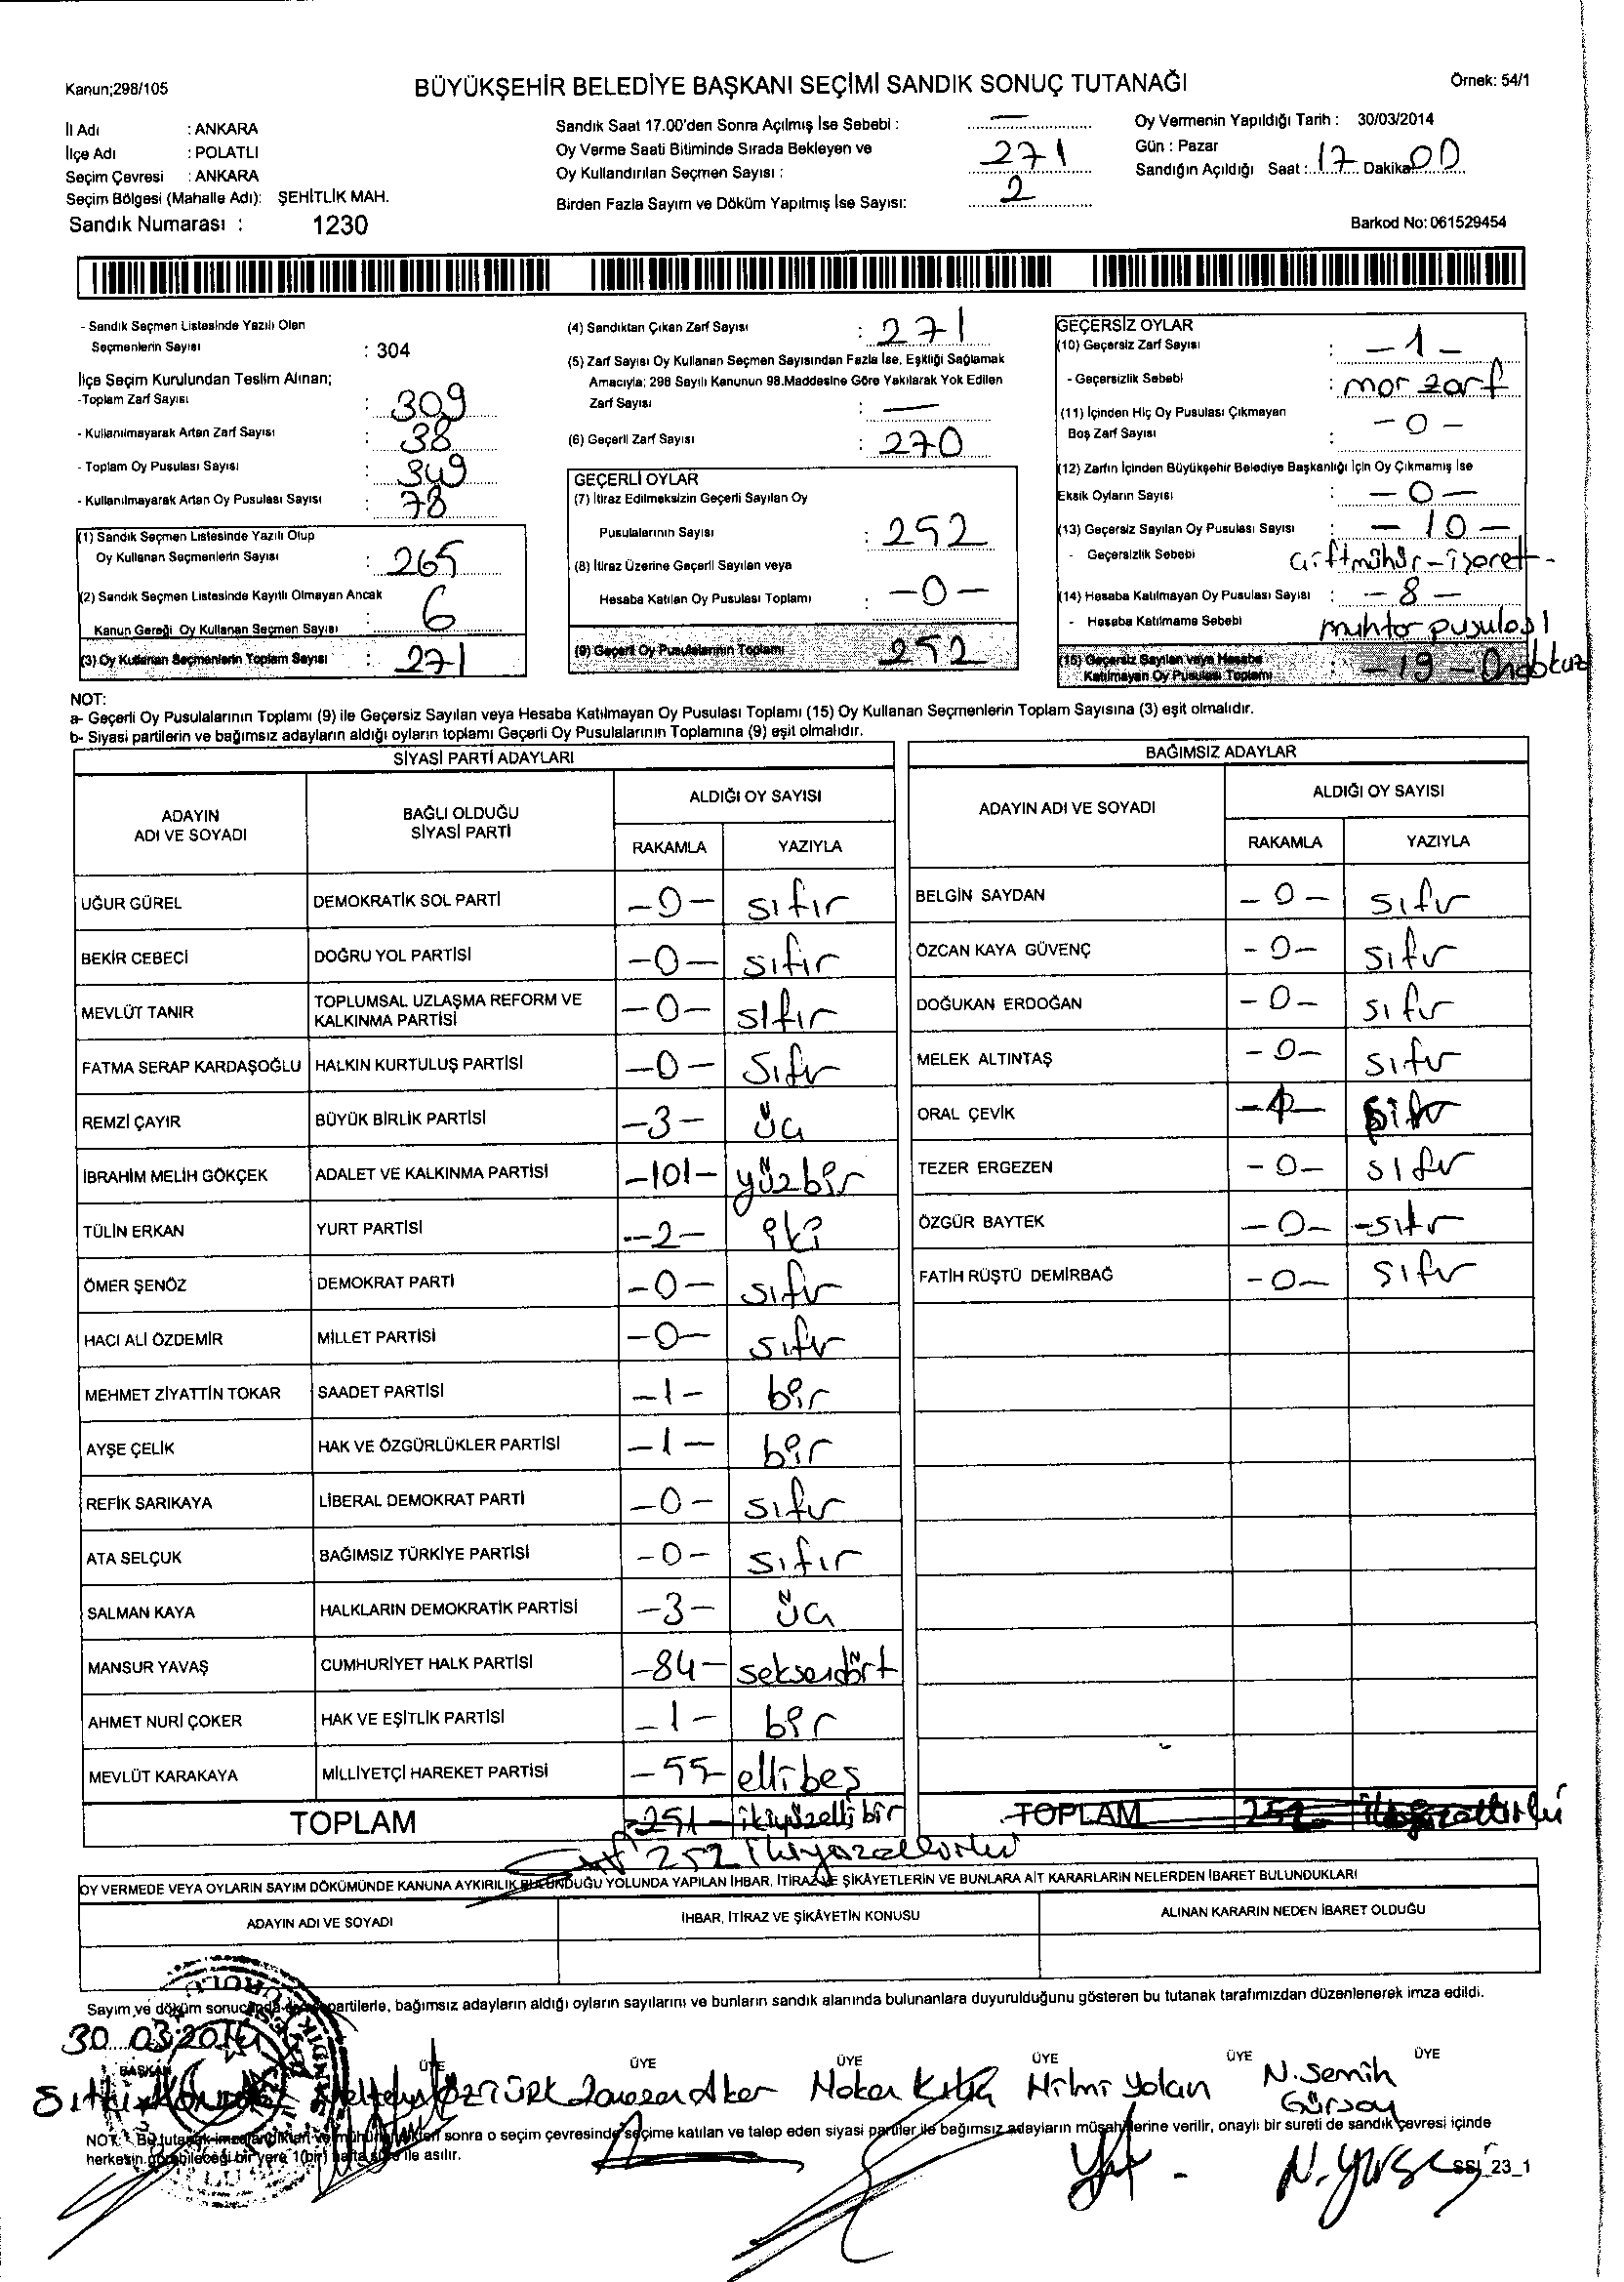 Kanun;298/105
BÜYÜKŞEHİR BELEDİYE BAŞKANI SEÇİMİ SANDIK SONUÇ TUTANAĞI
Örnek: 54/1
İl Adı : ANKARA
İlçe Adı : POLATLI
Seçim Çevresi : ANKARA
Seçim Bölgesi (Mahalle Adı): ŞEHİTLİK MAH.
Sandık Numarası : 1230
Sandık Saat 17.00'den Sonra Açılmış İse Sebebi : —
Oy Verme Saati Bitiminde Sırada Bekleyen ve
Oy Kullandırılan Seçmen Sayısı : 271
Birden Fazla Sayım ve Döküm Yapılmış İse Sayısı: 2
Oy Vermenin Yapıldığı Tarih : 30/03/2014
Gün : Pazar
Sandığın Açıldığı Saat : 17 Dakika 00
Barkod No: 061529454
- Sandık Seçmen Listesinde Yazılı Olan
Seçmenlerin Sayısı : 304
İlçe Seçim Kurulundan Teslim Alınan;
-Toplam Zarf Sayısı : 309
- Kullanılmayarak Artan Zarf Sayısı : 38
- Toplam Oy Pusulası Sayısı : 349
- Kullanılmayarak Artan Oy Pusulası Sayısı : 78
(1) Sandık Seçmen Listesinde Yazılı Olup
Oy Kullanan Seçmenlerin Sayısı : 265
(2) Sandık Seçmen Listesinde Kayıtlı Olmayan Ancak
Kanun Gereği Oy Kullanan Seçmen Sayısı : 6
(3) Oy Kullanan Seçmenlerin Toplam Sayısı : 271
(4) Sandıktan Çıkan Zarf Sayısı : 271
(5) Zarf Sayısı Oy Kullanan Seçmen Sayısından Fazla İse, Eşitliği Sağlamak
Amacıyla; 298 Sayılı Kanunun 98.Maddesine Göre Yakılarak Yok Edilen
Zarf Sayısı : —
(6) Geçerli Zarf Sayısı : 270
GEÇERLİ OYLAR
(7) İtiraz Edilmeksizin Geçerli Sayılan Oy
Pusulalarının Sayısı : 252
(8) İtiraz Üzerine Geçerli Sayılan veya
Hesaba Katılan Oy Pusulası Toplamı : -0-
(9) Geçerli Oy Pusulalarının Toplamı : 252
GEÇERSİZ OYLAR
(10) Geçersiz Zarf Sayısı : -1-
- Geçersizlik Sebebi : mor zarf
(11) İçinden Hiç Oy Pusulası Çıkmayan
Boş Zarf Sayısı : -0-
(12) Zarfın İçinden Büyükşehir Belediye Başkanlığı İçin Oy Çıkmamış İse
Eksik Oyların Sayısı : -0-
(13) Geçersiz Sayılan Oy Pusulası Sayısı : -10-
- Geçersizlik Sebebi çiftmühür-işaret-
(14) Hesaba Katılmayan Oy Pusulası Sayısı : -8-
- Hesaba Katılmama Sebebi muhtar pusulası
(15) Geçersiz Sayılan veya Hesaba
Katılmayan Oy Pusulası Toplamı : -19- Ondokuz
NOT:
a- Geçerli Oy Pusulalarının Toplamı (9) ile Geçersiz Sayılan veya Hesaba Katılmayan Oy Pusulası Toplamı (15) Oy Kullanan Seçmenlerin Toplam Sayısına (3) eşit olmalıdır.
b- Siyasi partilerin ve bağımsız adayların aldığı oyların toplamı Geçerli Oy Pusulalarının Toplamına (9) eşit olmalıdır.
SİYASİ PARTİ ADAYLARI
ADAYIN ADI VE SOYADI BAĞLI OLDUĞU SİYASİ PARTİ ALDIĞI OY SAYISI
RAKAMLA YAZIYLA
UĞUR GÜREL DEMOKRATİK SOL PARTİ -0- sıfır
BEKİR CEBECİ DOĞRU YOL PARTİSİ -0- sıfır
MEVLÜT TANIR TOPLUMSAL UZLAŞMA REFORM VE KALKINMA PARTİSİ -0- sıfır
FATMA SERAP KARDAŞOĞLU HALKIN KURTULUŞ PARTİSİ -0- sıfır
REMZİ ÇAYIR BÜYÜK BİRLİK PARTİSİ -3- üç
İBRAHİM MELİH GÖKÇEK ADALET VE KALKINMA PARTİSİ -101- yüzbir
TÜLİN ERKAN YURT PARTİSİ -2- iki
ÖMER ŞENÖZ DEMOKRAT PARTİ -0- sıfır
HACI ALİ ÖZDEMİR MİLLET PARTİSİ -0- sıfır
MEHMET ZİYATTİN TOKAR SAADET PARTİSİ -1- bir
AYŞE ÇELİK HAK VE ÖZGÜRLÜKLER PARTİSİ -1- bir
REFİK SARIKAYA LİBERAL DEMOKRAT PARTİ -0- sıfır
ATA SELÇUK BAĞIMSIZ TÜRKİYE PARTİSİ -0- sıfır
SALMAN KAYA HALKLARIN DEMOKRATİK PARTİSİ -3- üç
MANSUR YAVAŞ CUMHURİYET HALK PARTİSİ -84- seksendört
AHMET NURİ ÇOKER HAK VE EŞİTLİK PARTİSİ -1- bir
MEVLÜT KARAKAYA MİLLİYETÇİ HAREKET PARTİSİ -55- ellibeş
TOPLAM -251- ikiyüzellibir
252
BAĞIMSIZ ADAYLAR
ADAYIN ADI VE SOYADI ALDIĞI OY SAYISI
RAKAMLA YAZIYLA
BELGİN SAYDAN -0- sıfır
ÖZCAN KAYA GÜVENÇ -0- sıfır
DOĞUKAN ERDOĞAN -0- sıfır
MELEK ALTINTAŞ -0- sıfır
ORAL ÇEVİK sıfır
TEZER ERGEZEN -0- sıfır
ÖZGÜR BAYTEK -0- -sıfır
FATİH RÜŞTÜ DEMİRBAĞ -0- sıfır
TOPLAM 252
OY VERMEDE VEYA OYLARIN SAYIM DÖKÜMÜNDE KANUNA AYKIRILIK BULUNDUĞU YOLUNDA YAPILAN İHBAR, İTİRAZ VE ŞİKÂYETLERİN VE BUNLARA AİT KARARLARIN NELERDEN İBARET BULUNDUKLARI
ADAYIN ADI VE SOYADI İHBAR, İTİRAZ VE ŞİKÂYETİN KONUSU ALINAN KARARIN NEDEN İBARET OLDUĞU
Sayım ve döküm sonucunda partilerle, bağımsız adayların aldığı oyların sayılarını ve bunların sandık alanında bulunanlara duyurulduğunu gösteren bu tutanak tarafımızdan düzenlenerek imza edildi.
30 03 2014
BAŞKAN ÜYE ÜYE ÜYE ÜYE ÜYE ÜYE
ÖZTÜRK Hilmi Yolan N. Semih
Gürsoy
NOT: Bu tutanak sonra o seçim çevresinde seçime katılan ve talep eden siyasi partiler ile bağımsız adayların müşahitlerine verilir, onaylı bir sureti de sandık çevresi içinde
herkesin görebileceği bir yere 1(bir) hafta süre ile asılır.
SSI_23_1